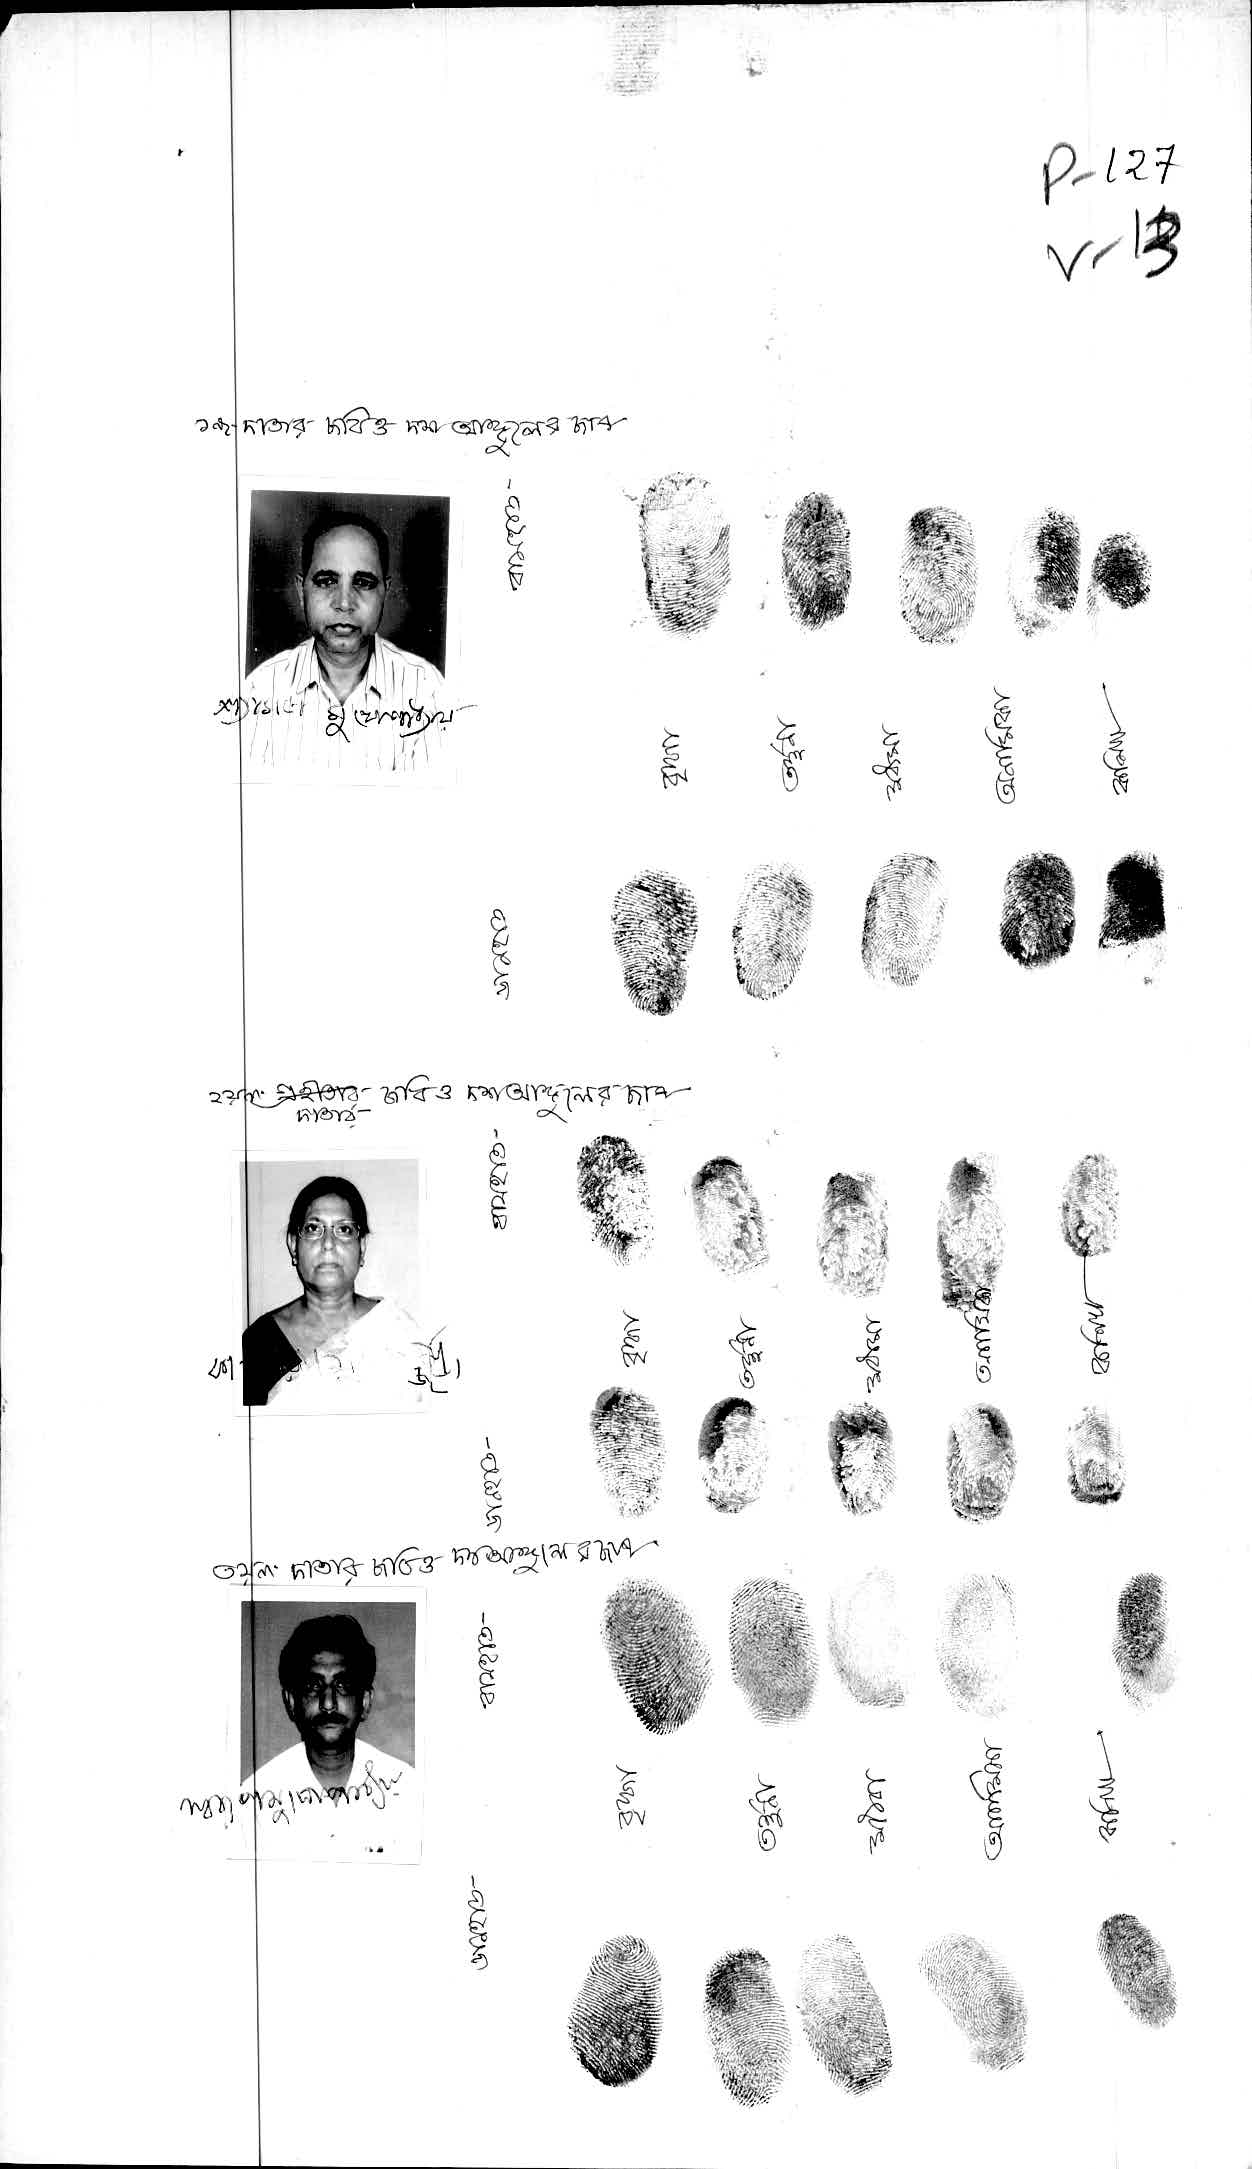 P-127
V-13
১নং দাতার ছবি ও দশ আঙ্গুলের ছাপ
বামহাত
মুখোপাধ্যায়
বৃদ্ধা
তর্জনী
মধ্যমা
অনামিকা
কনিষ্ঠা
ডানহাত
২য়নং গ্রহীতার ছবি ও দশ আঙ্গুলের ছাপ
দাতার
বামহাত
বৃদ্ধা
তর্জনী
মধ্যমা
অনামিকা
কনিষ্ঠা
ডানহাত
৩য়নং দাতার ছবি ও দশ আঙ্গুলের ছাপ
বামহাত
মুখোপাধ্যায়
বৃদ্ধা
তর্জনী
মধ্যমা
অনামিকা
কনিষ্ঠা
ডানহাত